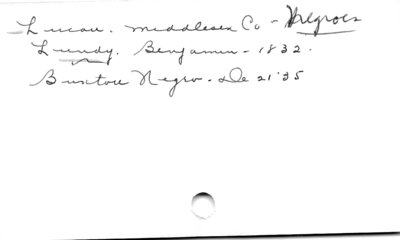 Lucan. Middlesex Co - Negroes
Lundy, Benjamin - 1832.
Buxton Negro. De 21'35